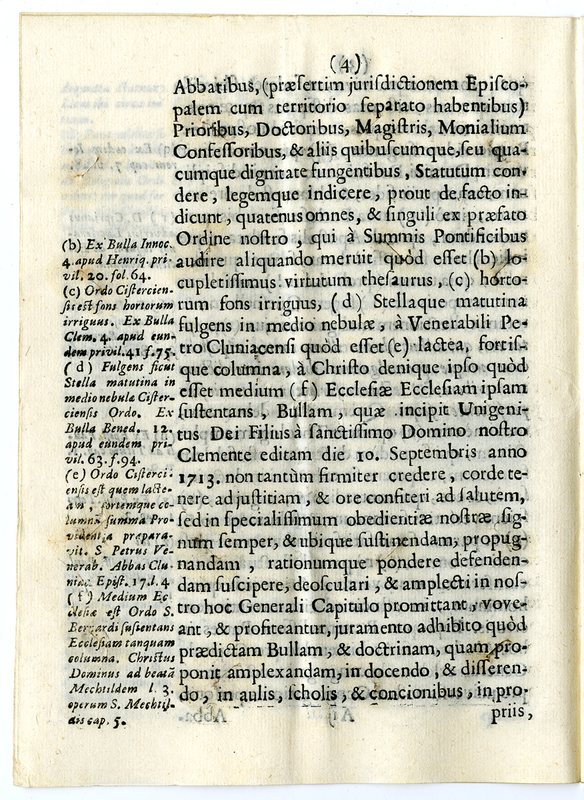 (4)
Abbatibus, (præsertim jurisdictionem Episco-
palem cum territorio separato habentibus)
Prioribus, Doctoribus, Magistris, Monialium
Confessoribus, & aliis quibuscumque, seu qua-
cumque dignitate fungentibus, Statutum con-
dere, legemque indicere, prout de facto in-
dicunt, quatenus omnes, & singuli ex præfato
Ordine nostro, qui à Summis Pontificibus
audire aliquando meruit quòd esset (b) lo-
cupletissimus virtutum thesaurus, (c) horto-
rum fons irriguus, (d) Stellaque matutina
fulgens in medio nebulæ, à Venerabili Pe-
tro Cluniacensi quòd esset (e) lactea, fortis-
que columna, à Christo denique ipso quòd
esset medium (f) Ecclesiæ Ecclesiam ipsam
sustentans, Bullam, quæ incipit Unigeni-
tus Dei Filius à sanctissimo Domino nostro
Clemente editam die 10. Septembris anno
1713. non tantùm firmiter credere, corde te-
nere ad justitiam, & ore confiteri ad salutem,
sed in specialissimum obedientiæ nostræ sig-
num semper, & ubique sustinendam, propug-
nandam, rationumque pondere defenden-
dam suscipere, deosculari, & amplecti in nos-
tro hoc Generali Capitulo promittant, vove-
ant, & profiteantur, juramento adhibito quòd
prædictam Bullam, & doctrinam, quam pro-
ponit amplexandam, in docendo, & disseren-
do, in aulis, scholis, & concionibus, in pro-
priis,
(b) Ex Bulla Innoc.
4. apud Henriq. pri-
vil. 20. fol. 64.
(c) Ordo Cistercien-
sis est fons hortorum
irriguus. Ex Bulla
Clem. 4. apud eun-
dem privil. 41 f. 75.
(d) Fulgens sicut
Stella matutina in
medio nebula Cister-
ciensis Ordo. Ex
Bulla Bened. 12.
apud eundem pri-
vil. 63. f. 94.
(e) Ordo Cisterci-
ensis est quem lacte-
am, fortemque co-
lumnã summa Pro-
videntia præpara-
vit. S. Petrus Ve-
nerab. Abbas Clu-
niac. Epist. 17. l. 4
(f) Medium Ec-
clesiæ est Ordo S.
Bernardi sustentans
Ecclesiam tanquam
columna. Christus
Dominus ad beatã
Mechtildem l. 3.
operum S. Mechtil-
dis cap. 5.